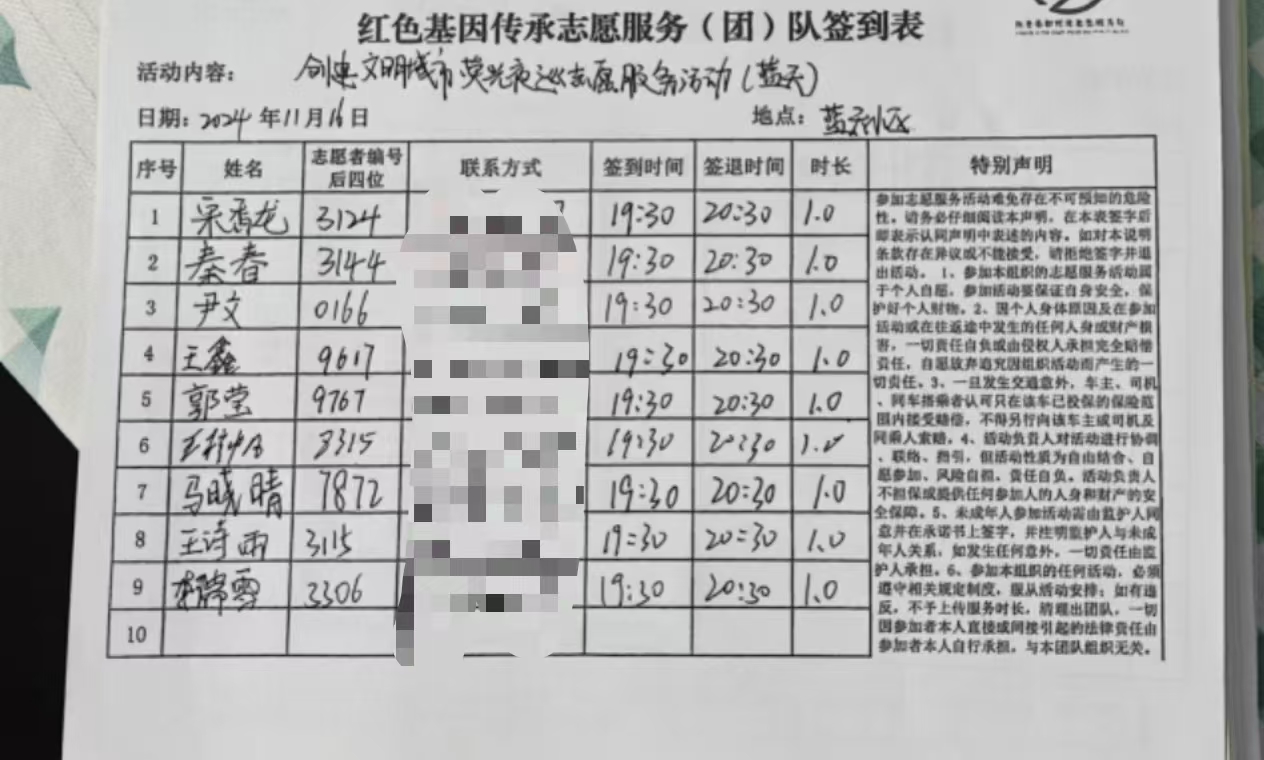 红色基因传承志愿服务（团）队签到表
活动内容： 创建文明城市荧光夜巡志愿服务活动（蓝天）
日期：2024年11月16日 地点：蓝天小区
序号 姓名 志愿者编号后四位 联系方式 签到时间 签退时间 时长 特别声明
1 宋香龙 3124 19:30 20:30 1.0
2 秦春 3144 19:30 20:30 1.0
3 尹文 0166 19:30 20:30 1.0
4 王鑫 9617 19:30 20:30 1.0
5 郭莹 9767 19:30 20:30 1.0
6 8315 19:30 20:30 1.0
7 马晓晴 7872 19:30 20:30 1.0
8 王诗雨 3115 19:30 20:30 1.0
9 3306 19:30 20:30 1.0
10
参加志愿服务活动难免存在不可预知的危险
性。请务必仔细阅读本声明，在本表签字后
即表示认同声明中表述的内容。如对本说明
条款存在异议或不能接受，请拒绝签字并退
出活动。 1、参加本组织的志愿服务活动属
于个人自愿，参加活动要保证自身安全，保
护好个人财物。2、因个人身体原因及在参加
活动或在往返途中发生的任何人身或财产损
害，一切责任自负或由侵权人承担完全赔偿
责任，自愿放弃追究因组织活动而产生的一
切责任。3、一旦发生交通意外，车主、司机
、同车搭乘者认可只在该车已投保的保险范
围内接受赔偿，不得另行向该车主或司机及
同乘人索赔。4、活动负责人对活动进行协调
、联络、指引，但活动性质为自由结合、自
愿参加、风险自担、责任自负。活动负责人
不担保或提供任何参加人的人身和财产的安
全保障。5、未成年人参加活动需由监护人同
意并在承诺书上签字，并注明监护人与未成
年人关系，如发生任何意外，一切责任由监
护人承担。6、参加本组织的任何活动，必须
遵守相关规定制度，服从活动安排；如有违
反，不予上传服务时长，清理出团队。一切
因参加者本人直接或间接引起的法律责任由
参加者本人自行承担，与本团队组织无关。